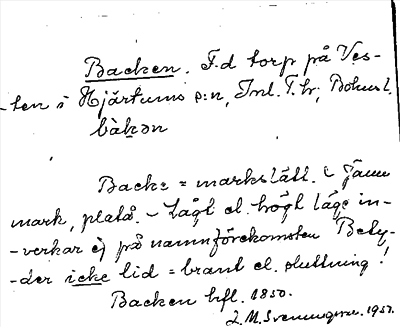 Backen. F.d torp på Ves-
-ten i Hjärtums s:n, Inl. T. hr, Bohusl.
bàkən
Backe = markslätt. - Jämn
mark, platå. - Lågt el. högt läge in-
-verkar ej på namnförekomsten Bety-
-der icke lid = brant el. sluttning!
Backen hfl. 1850.
J. M. 1957.